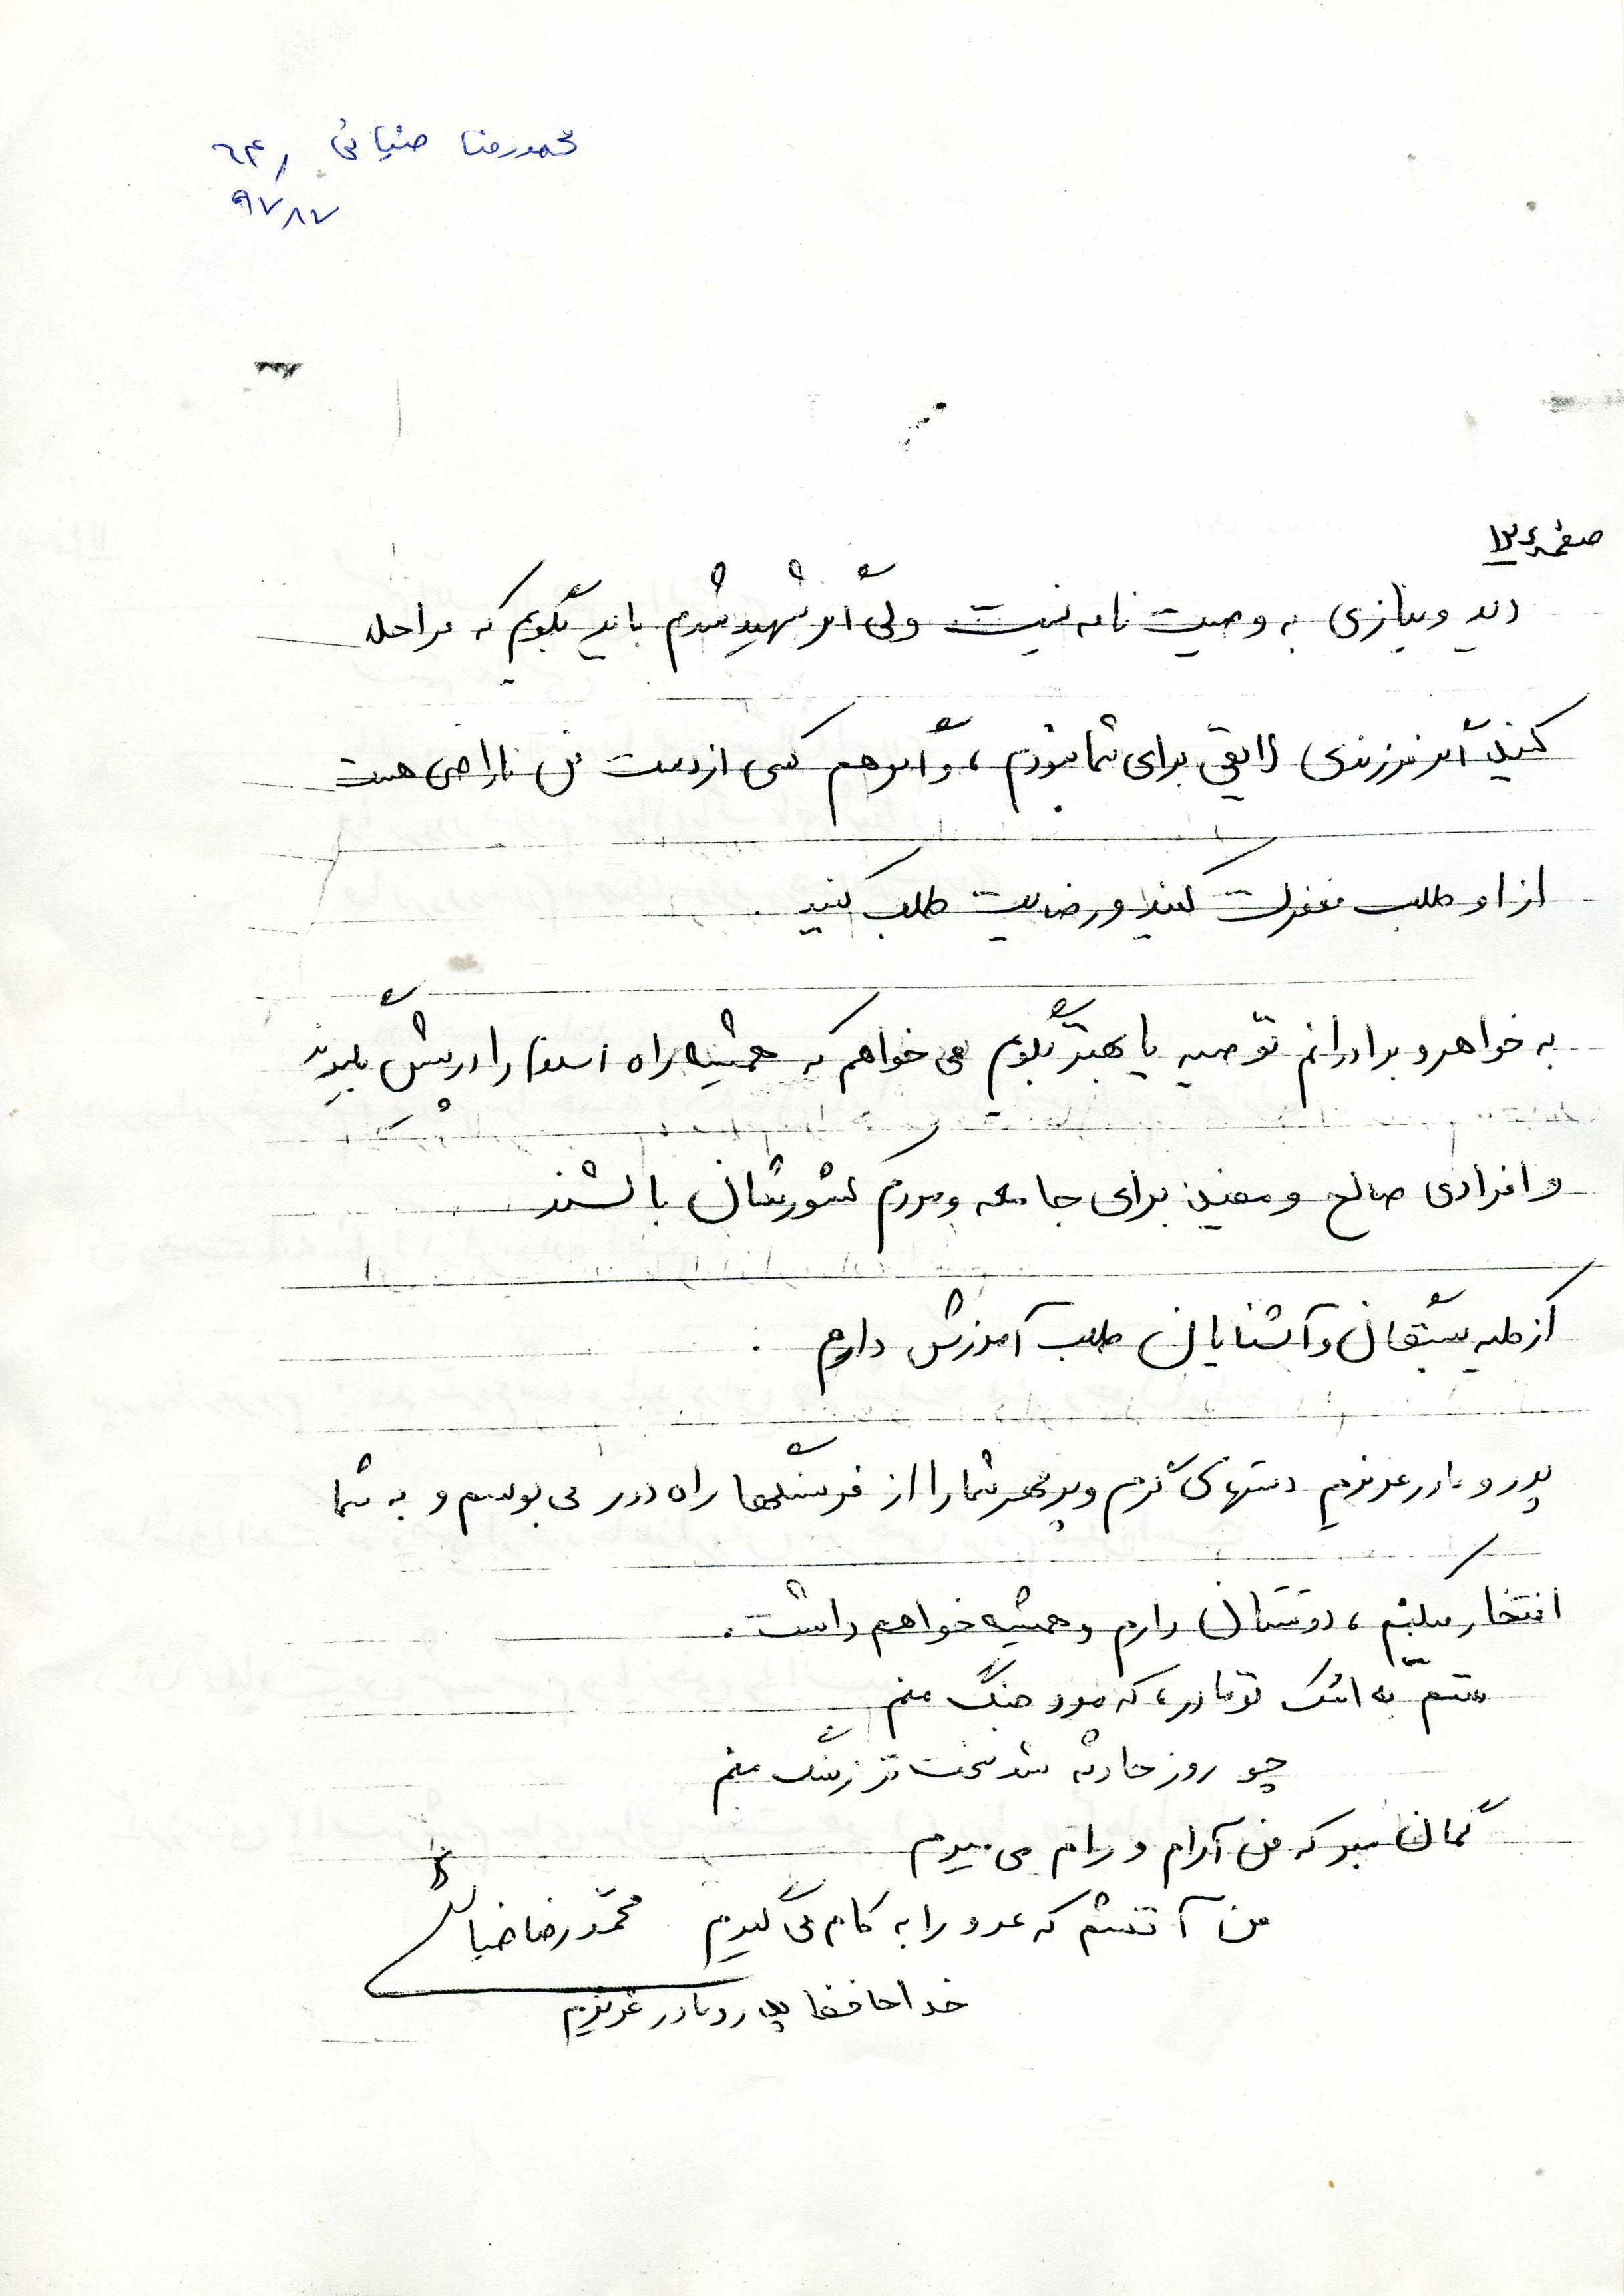 محمدرضا ضیائی ٦٤٠
٩٧٨٧
صفحه
دید و نیازی به وصیت نامه نیست ولی اگر شهید شدم باید بگویم که مرا حلال
کنید اگر فرزندی لایقی برای شما نبودم ، و اگر هم کسی از دست من ناراضی هست
از او طلب مغفرت کنید و رضایت طلب کنید .
به خواهر و برادرانم توصیه یا بهتر بگویم می خواهم که همیشه راه اسلام را در پیش بگیرند
و افرادی صالح و مفید برای جامعه و مردم کشورشان باشند
از کلیه بستگان و آشنایان طلب آمرزش دارم .
پدر و مادر عزیزم دستهای گرم و پرمهر شما را از فرسنگها راه دور می بوسم و به شما
افتخار میکنم ، دوستتان دارم و همیشه خواهم داشت .
قسم به اشک تو مادر ، که مرد جنگ منم
چو روز حادثه شد سخت تر ز سنگ منم
گمان مبر که من آرام و رام می میرم
من آتشم که عدو را به کام می گیرم محمدرضا ضیائی
خداحافظ پدر و مادر عزیزم